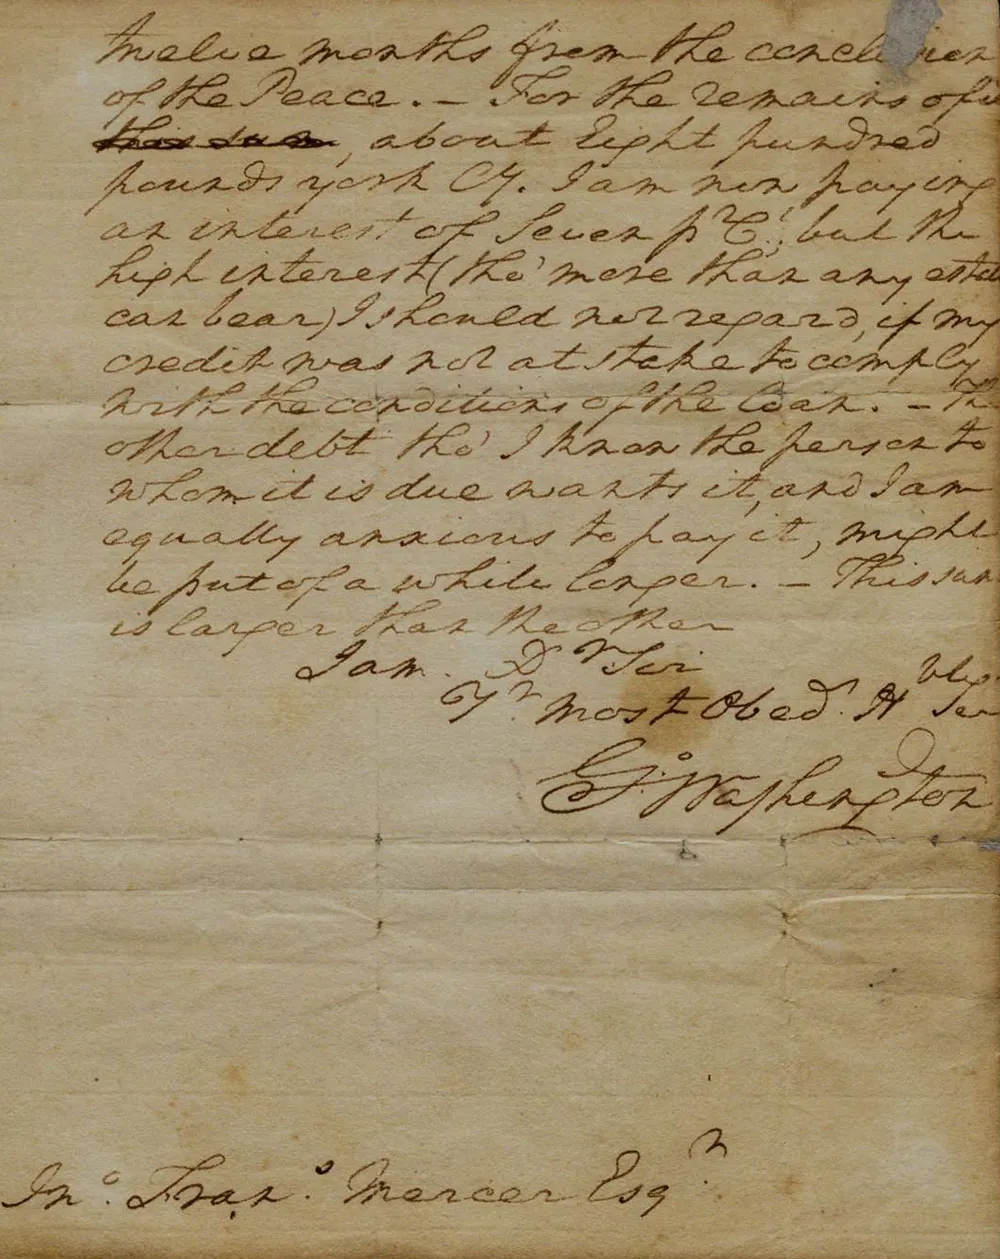 twelve months from the conclusion
of the Peace. – For the remains of it
this sum, about Eight hundred
pounds york Cy. I am now paying
an interest of Seven pr Ct; but the
high interest (tho' more than any estate
can bear) I should not regard, if my
credit was not at stake to comply
with the conditions of the loan. – The
other debt tho' I know the person to
whom it is due wants it, and I am
equally anxious to pay it, might
be put of a while longer. – This sum
is larger than the other
I am. Dr Sir
Yr. most Obedt. Hble Ser
Go: Washington
Jno. Frans. Mercer Esqr